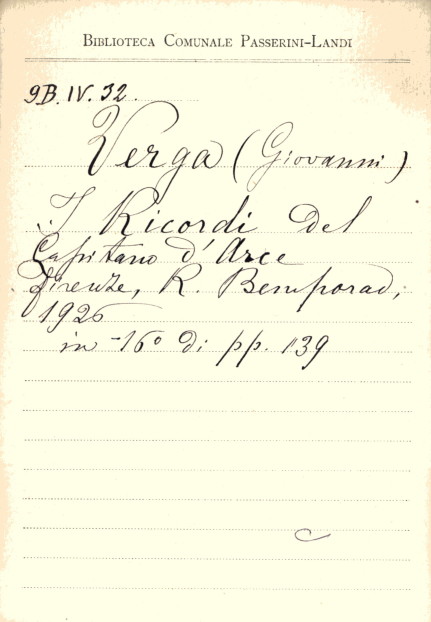 BIBLIOTECA COMUNALE PASSERINI-LANDI
9B. IV. 32.
Verga (Giovanni)
I Ricordi del
Capitano d'Arce
Firenze, R. Bemporad,
1926
in-16° di pp. 139